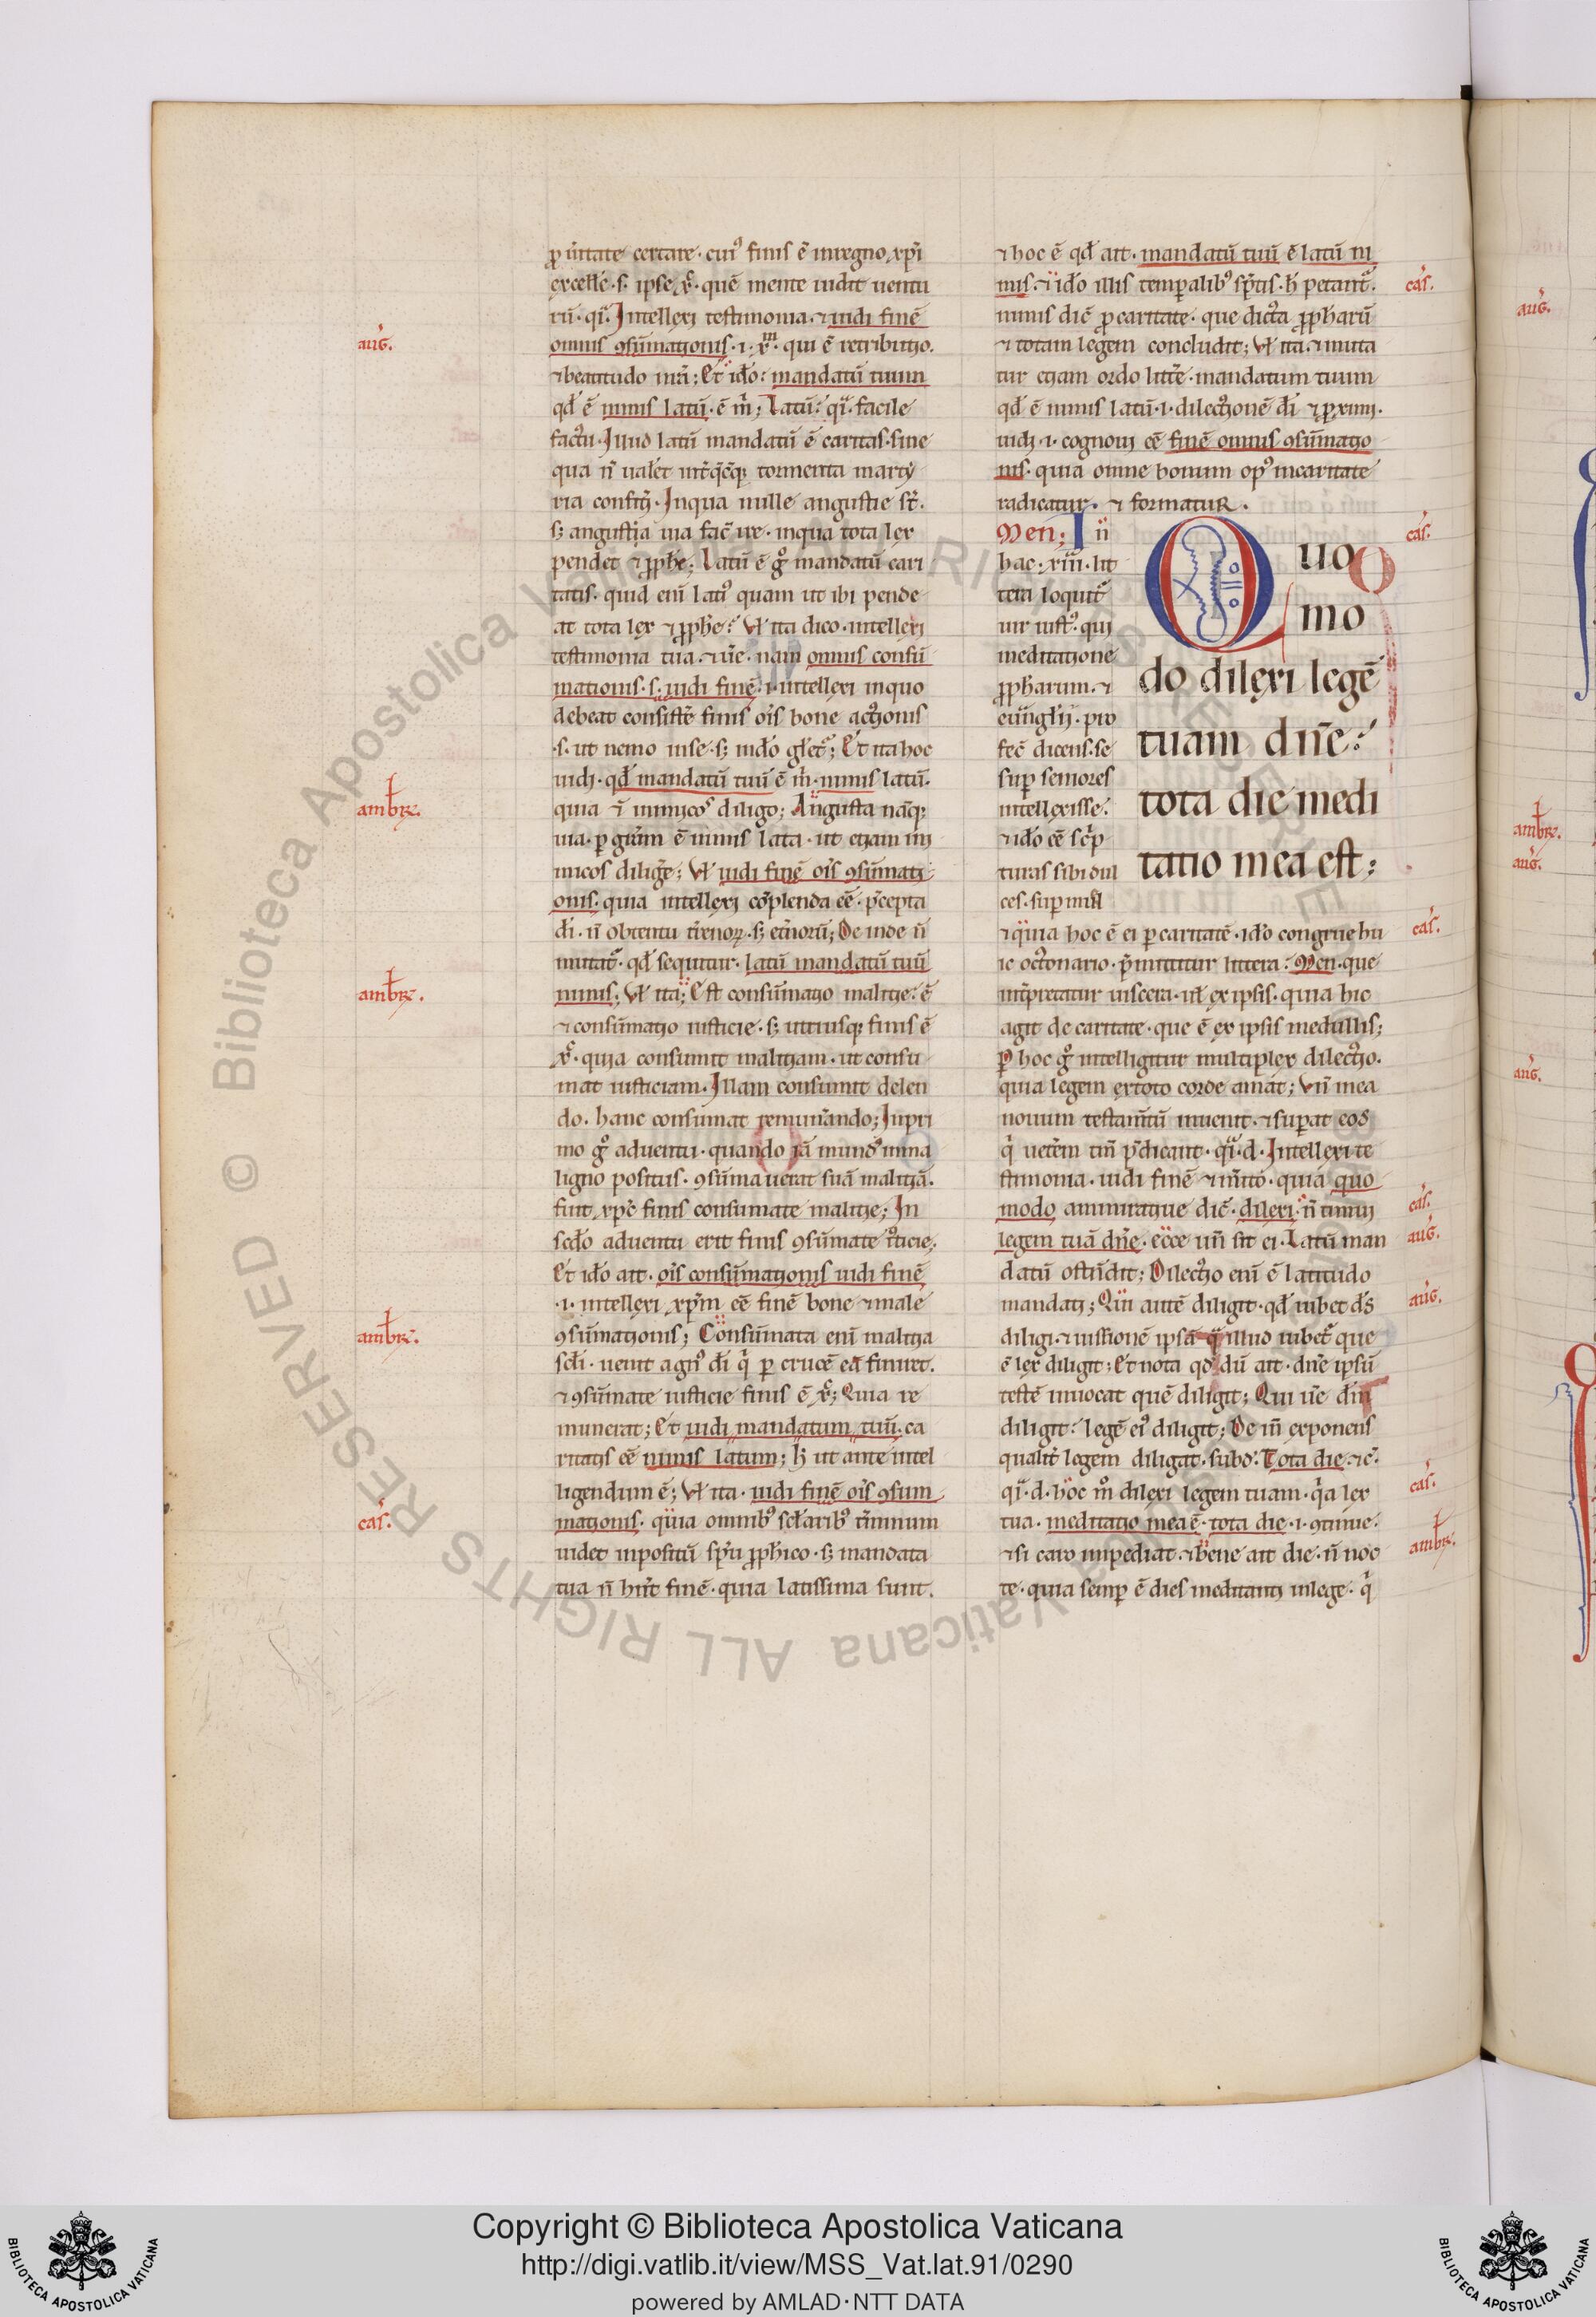 ꝓ ũitate certate · cuiꝰ finis ē in regno xp̄i
excellē · s · ipse xp̄c · quē mente uidit uentu
rū · q̇ · Intellexi testimonia · ⁊ uidi finē
omnis ꝯsūmationis · i · xp̄m · qui ē retributio ·
⁊ beatitudo nr̄a ; Et iđo : mandatū tuum
qđ ē nimis latū · ē m̄ ; Latū : q̇ · facile
factu · Illud latū mandatū ē caritas · sine
qua n̄ ualet · tormenta marty
ria · Inqua nulle angustie st̄ ·
s; angustia uia · inqua tota lex
pendet ⁊ ꝓphe ; Latū ē gͦ mandatū cari
tatis · quid enī latiꝰ quam ut ibi pende
at tota lex ⁊ ꝓphe : Vł ita dico · intellexi
testimonia tua · nam omnis consū
mationis · s · uidi finē · i · intellexi inquo
debeat consistē finis oīs bone actionis
· s · ut nemo inse · s; indo gletͬ ; Et ita hoc
uidi · qđ mandatū tuū ē m̄ · nimis latū ·
quia ⁊ inimicos diligo ; Angusta naq;
uia · ē nimis lata · ut etiam ini
micos diligē ; Vł uidi finē oīs ꝯsūmati
onis · quia intellexi cōplenda eē · p̄cepta
di · n̄ obtentu t̄renoꝝ · s; et̄norū ; De inde n̄
mutatͬ · qđ sequitur · latū mandatū tuū
nimis ; Vł ita ; Est consūmatio malitie : ē
⁊ consūmatio iusticie · s; utriusq; finis ē
xp̄c · quia consumit malitiam · ut consu
mat iusticiam · Illam consumit delen
do · hanc consumat remun̄ando ; Inpri
mo gͦ aduentu · quando iā mundꝰ inma
ligno positus · ꝯsūmauerat suā malitiā ·
fuit xp̄c finis consumate malitie ; In
scđo aduentu erit finis ꝯsūmate
Et iđo ait · oīs consūmationis uidi finē
· i · intellexi xp̄m eē finē bone ⁊ male
ꝯsūmationis ; Consūmata enī malitia
scłi · uenit agnꝰ di q̇ ꝑ crucē eā finiret ·
⁊ ꝯsūmate iusticie finis ē xp̄c ; Quia re
munerat ; Et uidi mandatum tuū · ca
ritatis eē nimis latum ; ħ ut ante intel
ligendum ē ; Vł ita · uidi finē oīs ꝯsum
mationis · quia omnibꝰ t̄minum
uidet inpositū sp̄u ꝓphico · s; mandata
tua n̄ hn̄t finē · quia latissima sunt ·
⁊ hoc ē qđ ait · mandatū tuū ē latū ni
mis · ⁊ iđo illis temꝑalibꝰ · ħ petant ·
nimis diē ꝓ caritate · que dicta ꝓpharū
⁊ totam legem concludit ; Vł ita ⁊ muta
tur etiam ordo litt̄e · mandatum tuum
qđ ē nimis latū · i · dilectionē di ⁊ ꝓximi ·
uidi · i · cognoui eē finē omnis ꝯsūmatio
nis · quia omne bonum opꝰ incaritate
radicatur · ⁊ formatur ·
Men ; In
hac · xiii · lit
tera loquitͬ
uir iustꝰ · qui
meditatione
ꝓpharum · ⁊
euuglii · pro
fec̄ dicens · se
suꝑ seniores
intellexisse :
⁊ iđo eē sc̄p
turas sibi dul
ces · suꝑ mel
Quo
mo
do dilexi legē
tuam dn̄e :
tota die medi
tatio mea est :
⁊ quia hoc ē ei ꝑ caritatē · iđo congrue hu
ic octonario · p̄mittitur littera : Men · que
int̄pretatur uiscera · uł ex ipsis · quia hic
agit de caritate · que ē ex ipsis medullis ;
ꝑ hoc gͦ intelligitur multiplex dilectio ·
quia legem ex toto corde amat ; Vn̄ mea
nouum testam̄tū inuenit · ⁊ suꝑat eos
q̇ uet̄em tm̄ p̄dicant · q̇ · d · Intellexi te
stimonia · uidi finē ⁊ m̄ito · quia quo
modo dilexi
legem tuā dn̄e · ecce un̄ sit ei · Latū man
datū ostēdit ; Dilectio enī ē latitudo
mandati ; Qui autē diligit · qđ iubet ds̄
diligi · ⁊ iussionē ipsā q̄ illud iubet que
ē lex diligit ; Et nota qđ dū ait · dn̄e ipsū
testē inuocat quē diligit ; Qui ūe dm̄
diligit : legē eiꝰ diligit ; De in̄ exponens
qualit̄ legem diligat · subđ : Tota die ⁊c̄ ·
q̇ · d · hoc mͦ dilexi legem tuam · q̇a lex
tua · meditatio mea ē · tota die · i · ꝯtinue ·
⁊ si caro impediat · ⁊ bene ait die · n̄ noc
te · quia semꝑ ē dies meditanti inlege · q̇
aug̃.
ambꝛ.
ambꝛ.
ambꝛ.
cas̃.
cas̃.
cas̃.
cas̃.
cas̃.
aug̃.
aug̃.
cas̃.
ambꝛ.
aug̃.
ambꝛ.
aug̃.
aug̃.
© Biblioteca Apostolica Vaticana ALL RIGHTS RESERVED
© Biblioteca Apostolica Vaticana ALL RIGHTS RESERVED
Copyright © Biblioteca Apostolica Vaticana
http://digi.vatlib.it/view/MSS_Vat.lat.91/0290
powered by AMLAD·NTT DATA
BIBLIOTECA APOSTOLICA VATICANA
BIBLIOTECA APOSTOLICA VATICANA